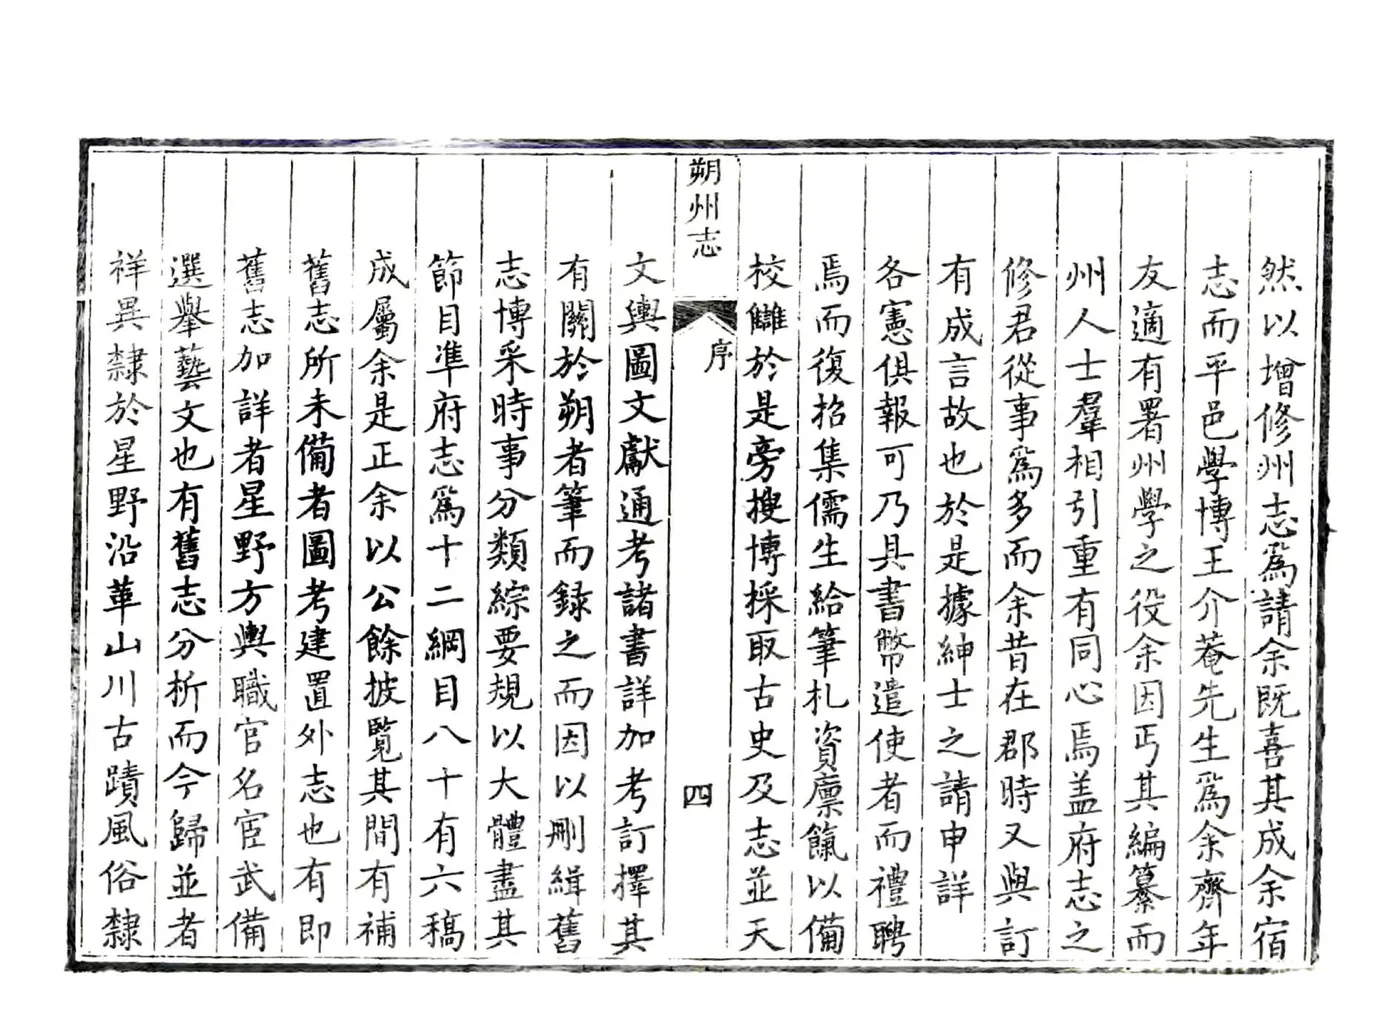 然以增修州志為請余既喜其成余宿
志而平邑學博王介菴先生為余齊年
友適有署州學之役余因丐其編纂而
州人士羣相引重有同心焉盖府志之
修君從事為多而余昔在郡時又與訂
有成言故也於是據紳士之請申詳
各憲俱報可乃具書幣遣使者而禮聘
焉而復招集儒生給筆札資廪餼以備
校讎於是旁搜博採取古史及志並天
朔州志
序
四
文輿圖文獻通考諸書詳加考訂擇其
有關於朔者筆而録之而因以刪緝舊
志博采時事分類綜要規以大體盡其
節目準府志為十二綱目八十有六稿
成屬余是正余以公餘披覧其間有補
舊志所未備者圖考建置外志也有即
舊志加詳者星野方輿職官名宦武備
選舉藝文也有舊志分析而今歸並者
祥異隸於星野沿革山川古蹟風俗隸